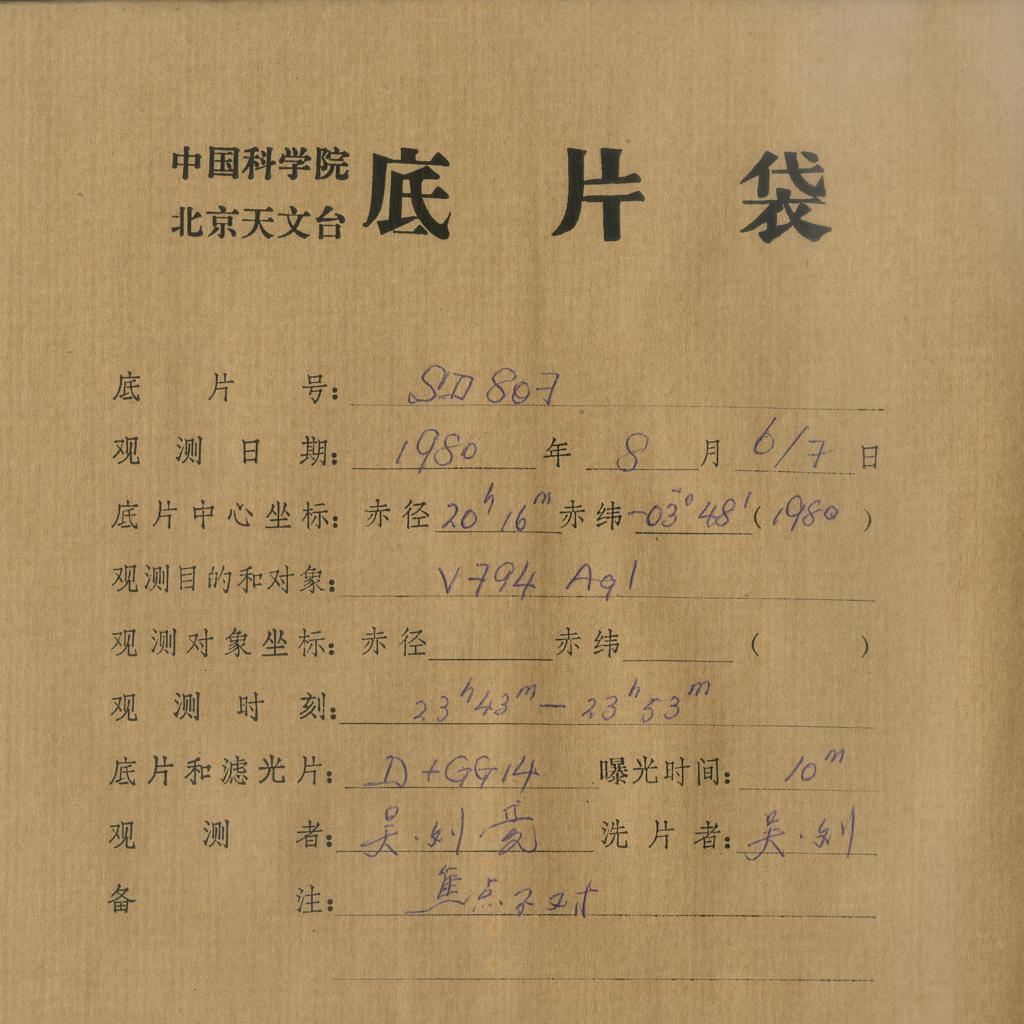 中国科学院
北京天文台
底片袋
底片号: SD 807
观测日期: 1980 年 8 月 6/7 日
底片中心坐标: 赤径 20h 16m 赤纬 -03° 48' (1980)
观测目的和对象: V794 Aql
观测对象坐标: 赤径 赤纬 ( )
观测时刻: 23h43m — 23h53m
底片和滤光片: D+GG14 曝光时间: 10m
观测者: 吴·刘 洗片者: 吴·刘
备注: 焦点不对